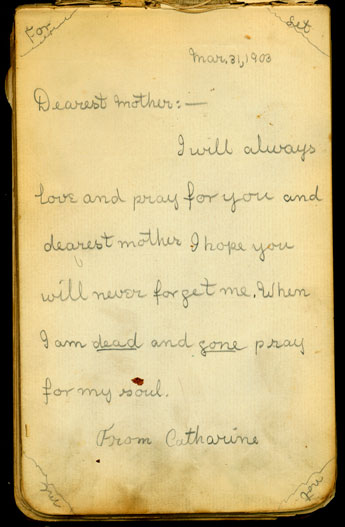 For
Get
Mar. 31, 1903
Dearest Mother:—
I will always
love and pray for you and
dearest mother I hope you
will never forget me. When
I am dead and gone pray
for my soul.
From Catharine
me
not